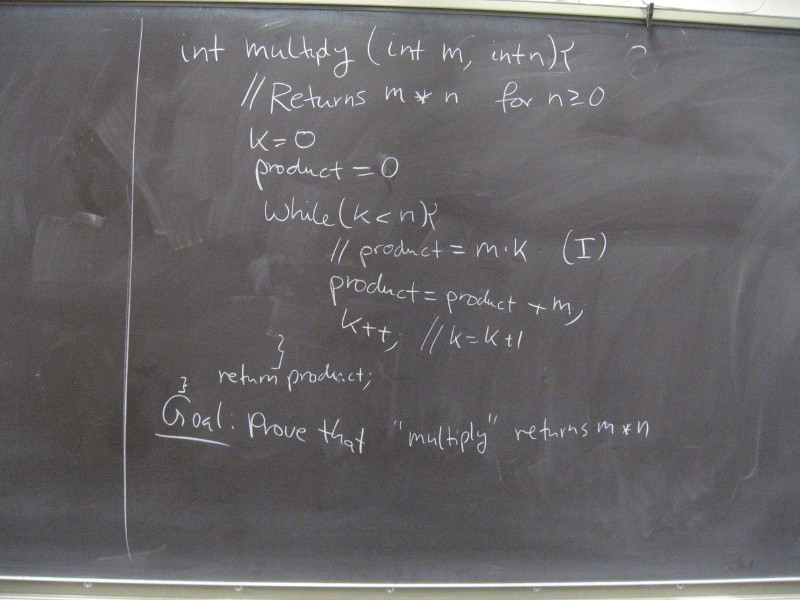 int multiply (int m, int n){
// Returns m * n for n ≥ 0
k = 0
product = 0
While (k < n){
// product = m·k (I)
product = product + m;
k++; // k = k+1
}
return product;
}
Goal: Prove that "multiply" returns m * n